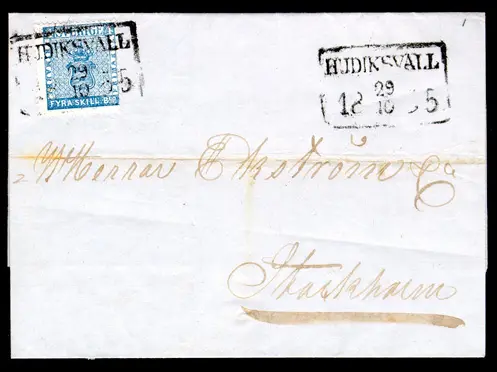 SVERIGE
HUDIKSVALL
29
10
5
FYRA SKILL. Bco
HUDIKSVALL
29
18 10 55
Herrar Ekström & Co
Stockholm